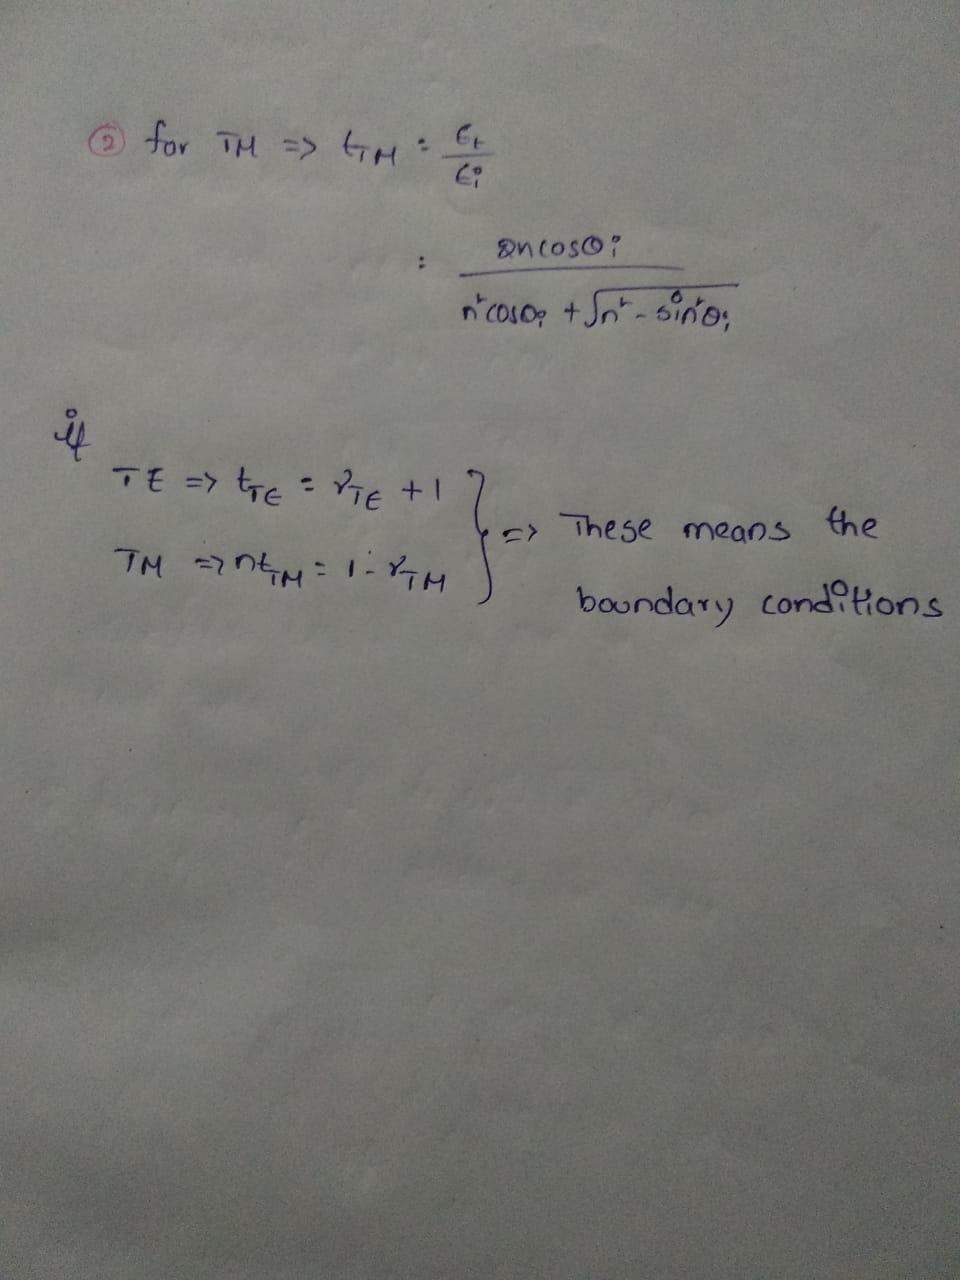 ② for TM => t_TM = E_t / E_i
= 2n cosθ_i / n² cosθ_i + √n² - sin²θ_i
if
TE => t_TE = r_TE + 1
TM => nt_TM = 1 - r_TM
} => These means the
boundary conditions